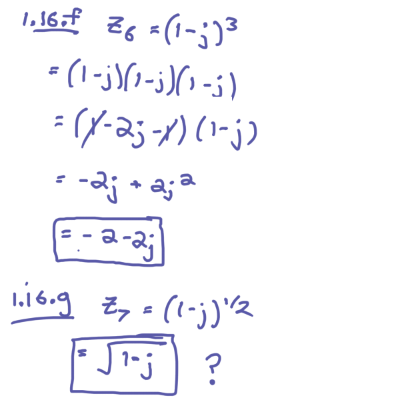 1.16.f z₆ = (1-j)³
= (1-j)(1-j)(1-j)
= (1-2j-1)(1-j)
= -2j + 2j²
= -2-2j
1.16.g z₇ = (1-j)^1/2
= √1-j ?